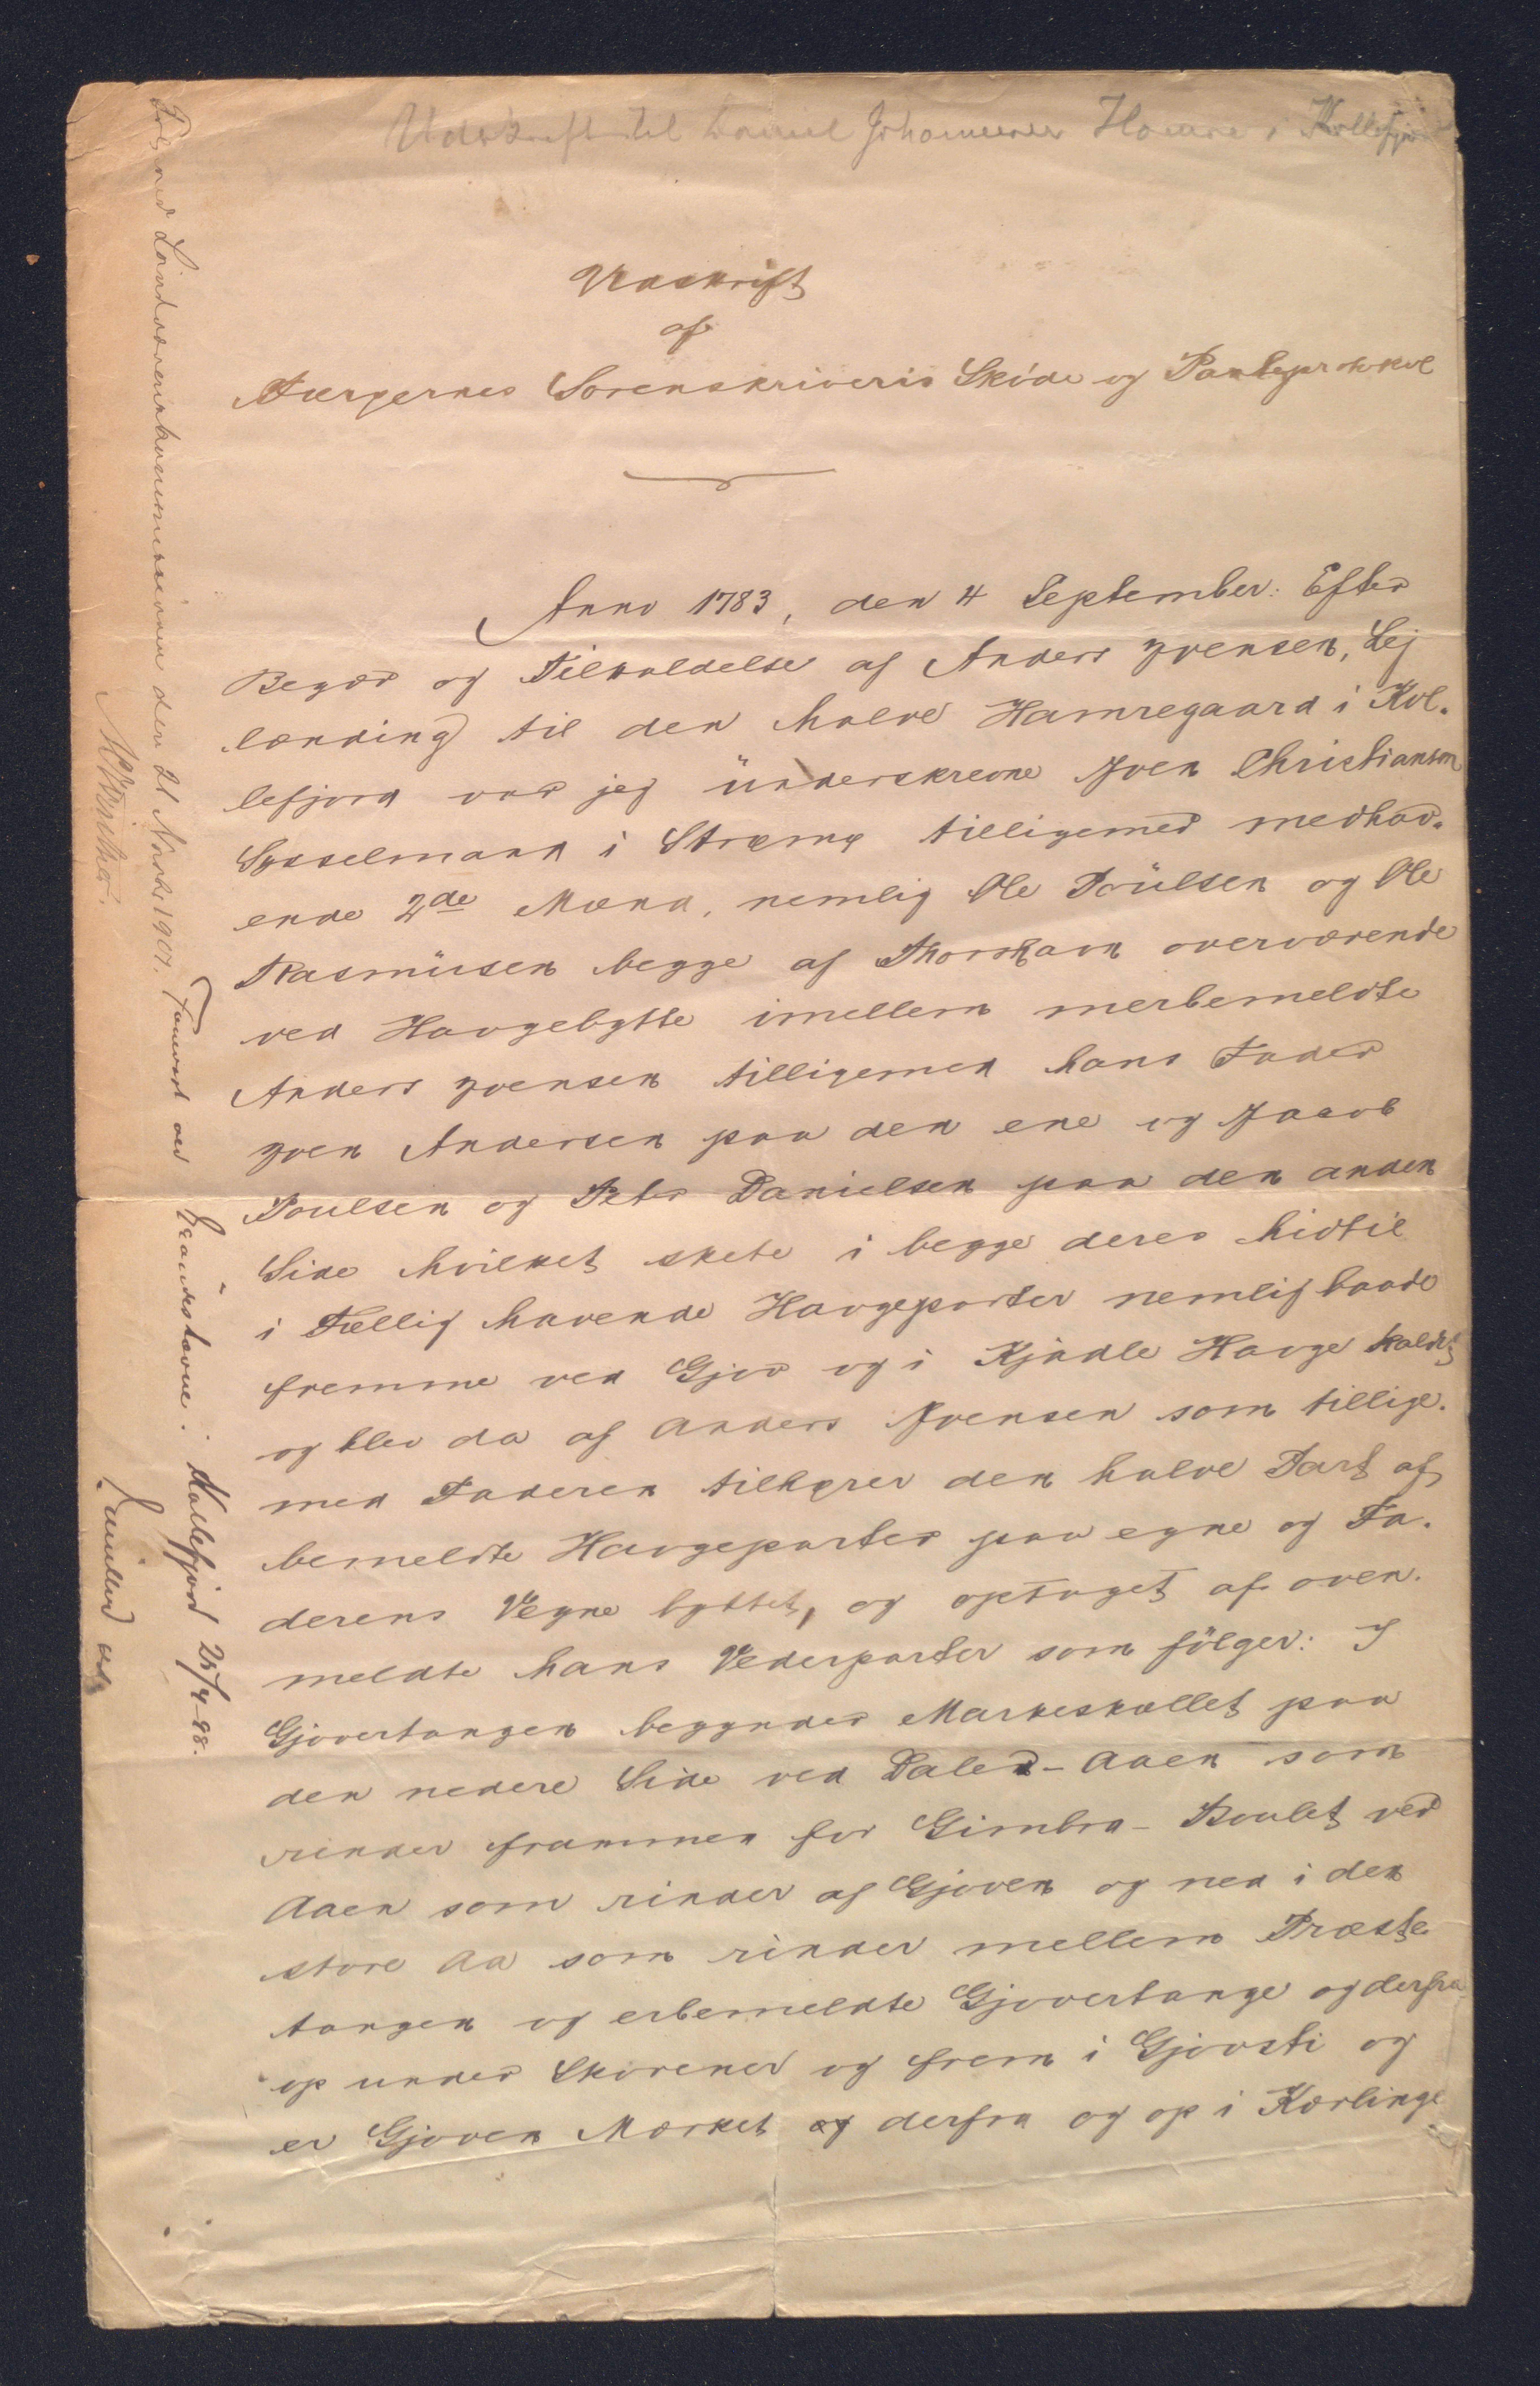 Udskrift til Daniel Johannesen Hamre i Kollefjord
Udskrift
af
Færøernes Sorenskriveris Skøde og Panteprotokol
Anno 1783, den 4 September: Efter
Begær og Tilkaldelse af Anders Joensen, Lej
lænding til den halve Hamregaard i Kol-
lefjord var jeg ünderskrevne Joen Christiansøn
Sysselmand i Strømø tilligemed medhav-
ende 2de Mænd, nemlig Ole Poülsen og Ole
Rasmüssen begge af Thorshavn overværende
ved Haugebytte imellem merbemeldte
Anders Joensen tilligemed hans Fader
Joen Andersen paa den ene og Jacob
Poulsen og Peter Danielsen paa den anden
Side hvilket skete i begge deres hidtil
i Fællig havende Haugeparter nemlig baade
fremme ved Gjov og i Kjådle Hauge kaldet
og blev da af Anders Joensen som tillige-
med Faderen tilhører den halve Part af
bemeldte Haugeparter paa egne og Fa-
derens Vegne byttet, og optaget af oven-
meldte hans Vederparter som fölger: I
Gjovertangen begynder Markeskællet paa
den nedere Side ved Dales-Aaen som
rinder frammen for Gimbra-Boulet ved
Aaen som rinder af Gjoven og ned i den
store Aa som rinder mellem Præste
tangen og erbemeldte Gjovertange og derfra
op under Skorener og frem i Gjovsti og
er Gjoven Mærket og derfra og op i Kærlinge
den 21 Novbr 1907.
Forevist ved Grandestævne i Kollefjord 25/4-88.